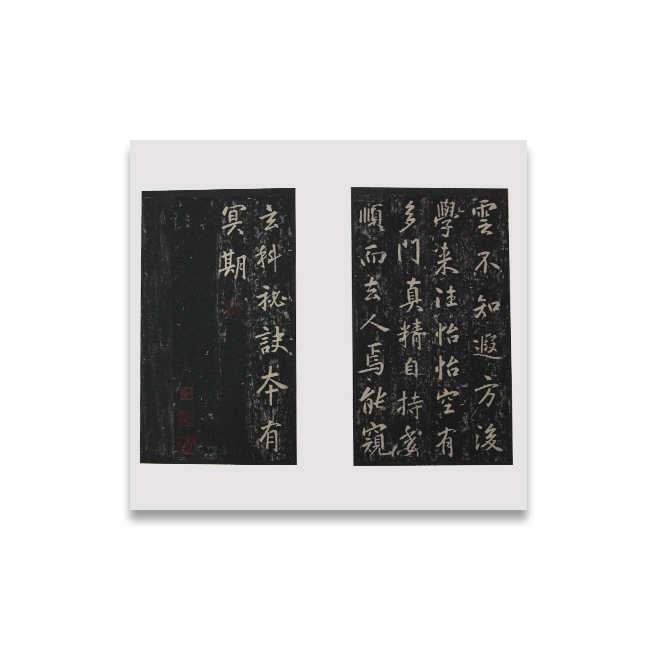 雲不知遐方後
學来往怡怡空有
多門真精自持委
順而去人焉能窺
玄科祕訣本有
冥期